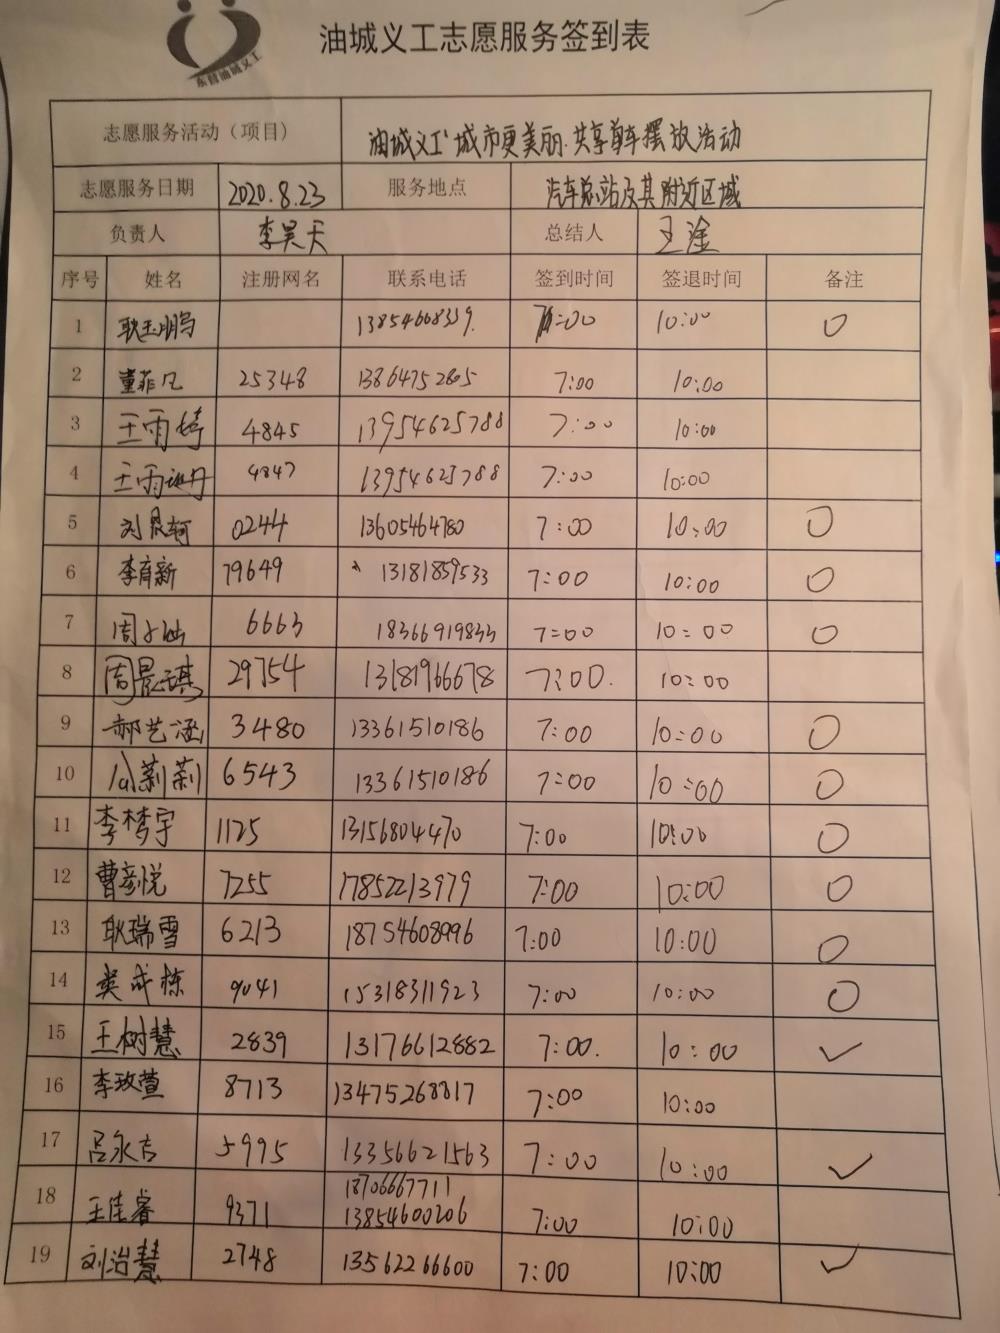 东营油城义工
油城义工志愿服务签到表
志愿服务活动（项目） 油城义工"城市更美丽·共享单车摆放活动
志愿服务日期 2020.8.23 服务地点 汽车总站及其附近区域
负责人 李昊天 总结人 王淦
序号 姓名 注册网名 联系电话 签到时间 签退时间 备注
1 耿玉鹏 13854608339. 7:00 10:00 O
2 董菲凡 25348 13864752805 7:00 10:00
3 王雨婷 4845 13954625788 7:00 10:00
4 王雨 4847 13954625788 7:00 10:00
5 刘 0244 13605464780 7:00 10:00 O
6 李育新 79649 13181859533 7:00 10:00 O
7 周 6663 18366919833 7:00 10:00 O
8 周 29754 13181966678 7:00. 10:00
9 郝艺涵 3480 13361510186 7:00 10:00 O
10 莉莉 6543 13361510186 7:00 10:00 O
11 李梦宇 1125 13156804470 7:00 10:00 O
12 曹彦悦 7255 17852213979 7:00 10:00 O
13 耿瑞雪 6213 18754608996 7:00 10:00 O
14 樊成栋 9041 15318311923 7:00 10:00 O
15 王树慧 2839 13176612882 7:00. 10:00 ✓
16 李玫萱 8713 13475268817 7:00 10:00
17 吕永吉 5995 13356621563 7:00 10:00 ✓
18 王佳睿 9371 18706667711 13854600206 7:00 10:00
19 刘治慧 2748 13562266600 7:00 10:00 ✓